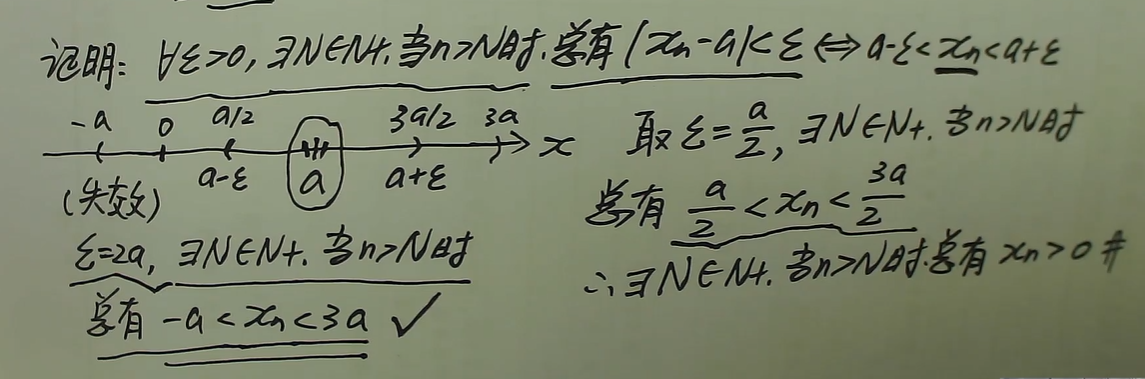 证明: ∀ε>0, ∃N∈N+. 当n>N时. 总有 |xn-a|<ε ⇔ a-ε<xn<a+ε
-a 0 a/2 3a/2 3a
x
a-ε a a+ε
(失效)
ε=2a, ∃N∈N+. 当n>N时
总有 -a<xn<3a ✓
取 ε=a/2, ∃N∈N+. 当n>N时
总有 a/2<xn<3a/2
∴ ∃N∈N+. 当n>N时. 总有 xn>0 #